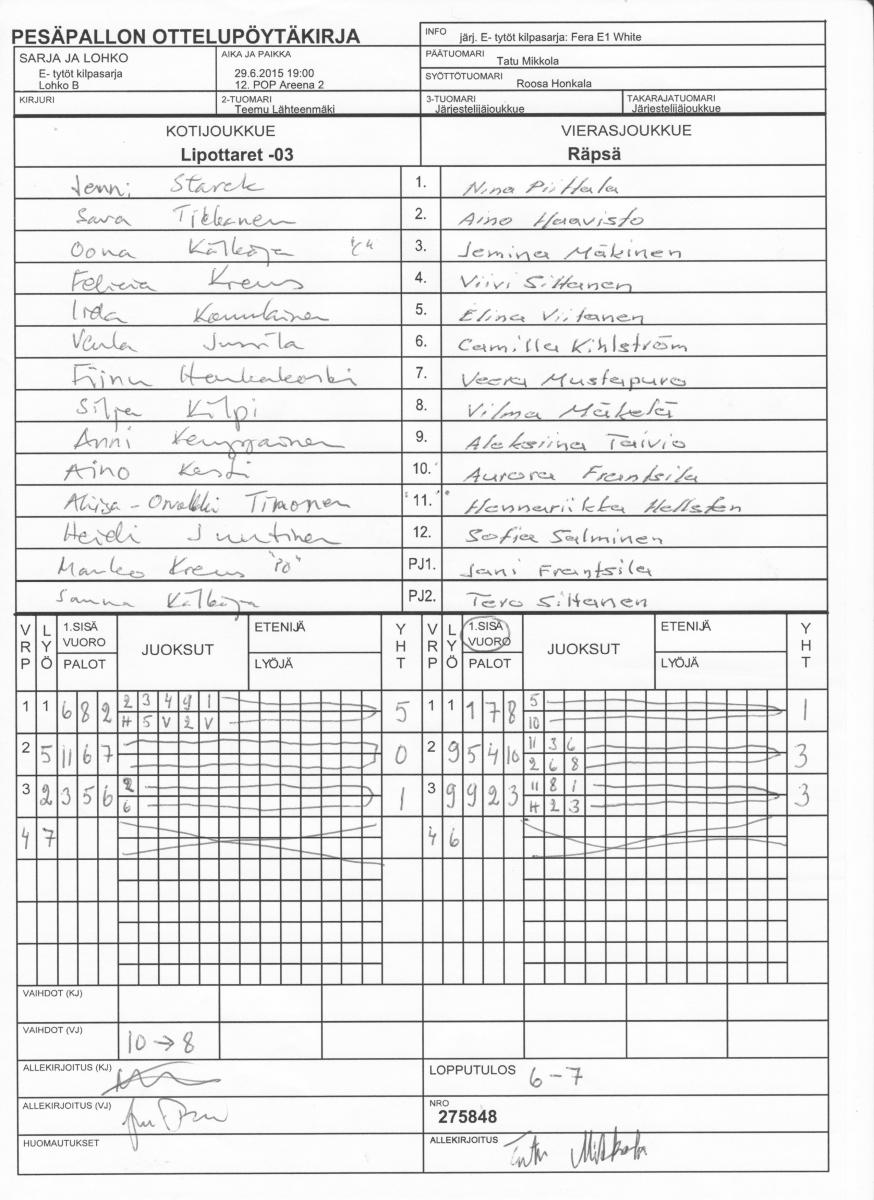 PESÄPALLON OTTELUPÖYTÄKIRJA
INFO järj. E- tytöt kilpasarja: Fera E1 White
SARJA JA LOHKO
E- tytöt kilpasarja
Lohko B
AIKA JA PAIKKA
29.6.2015 19:00
12. POP Areena 2
PÄÄTUOMARI Tatu Mikkola
SYÖTTÖTUOMARI Roosa Honkala
KIRJURI
2-TUOMARI
Teemu Lähteenmäki
3-TUOMARI
Järjestelijäjoukkue
TAKARAJATUOMARI
Järjestelijäjoukkue
KOTIJOUKKUE VIERASJOUKKUE
Lipottaret -03 Räpsä
Jenni Starck 1. Nina Piittala
Sara Tikkanen 2. Aino Haavisto
Oona Kälkäjä "C" 3. Jemina Mäkinen
Felicia Kreus 4. Viivi Siltanen
Iida 5. Elina Viitanen
Venla Junnila 6. Camilla Kihlström
Hankakoski 7. Veera Mustapuro
Silja Kilpi 8. Vilma Mäkelä
Anni Kemppainen 9. Aleksiina Taivio
Aino 10. Aurora Frantsila
-Orvokki Timonen "11." Hannariikka Hellsten
Heidi Juntinen 12. Sofia Salminen
Marko Kreus "PO" PJ1. Jani Frantsila
Sanna Kälkäjä PJ2. Tero Siltanen
VRP LYÖ 1.SISÄ VUORO PALOT JUOKSUT ETENIJÄ LYÖJÄ YHT VRP LYÖ 1.SISÄ VUORO PALOT JUOKSUT ETENIJÄ LYÖJÄ YHT
1 1 6 8 2 2 3 4 9 1 5 1 1 1 7 8 5 1
H 5 V 2 V 10
2 5 11 6 7 0 2 9 5 4 10 11 3 6 3
2 6 8
3 2 3 5 6 2 1 3 9 9 2 3 11 8 1 3
6 H 2 3
4 7 4 6
VAIHDOT (KJ)
VAIHDOT (VJ) 10 → 8
ALLEKIRJOITUS (KJ)
LOPPUTULOS 6-7
ALLEKIRJOITUS (VJ)
NRO
275848
HUOMAUTUKSET
ALLEKIRJOITUS Tatu Mikkola